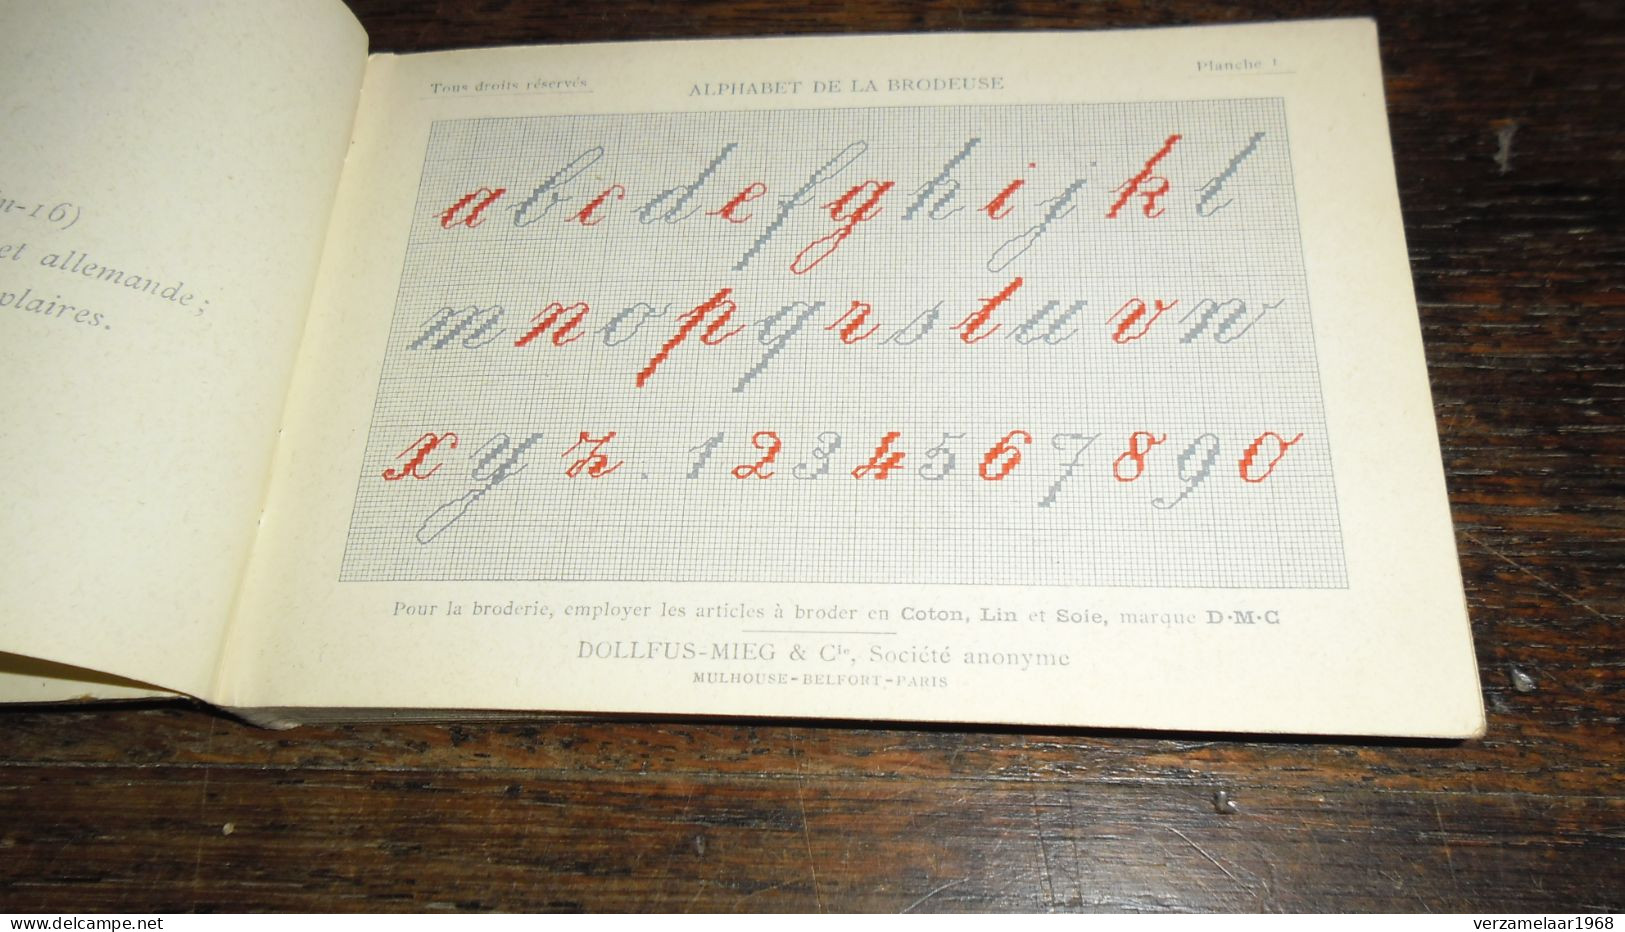 n-16)
et allemande;
plaires.
Tous droits réservés
ALPHABET DE LA BRODEUSE
Planche 1
a b c d e f g h i j k l
m n o p q r s t u v w
x y z . 1 2 3 4 5 6 7 8 9 0
Pour la broderie, employer les articles à broder en Coton, Lin et Soie, marque D·M·C
DOLLFUS-MIEG & Cie, Société anonyme
MULHOUSE-BELFORT-PARIS
delcampe.net
verzamelaar1968